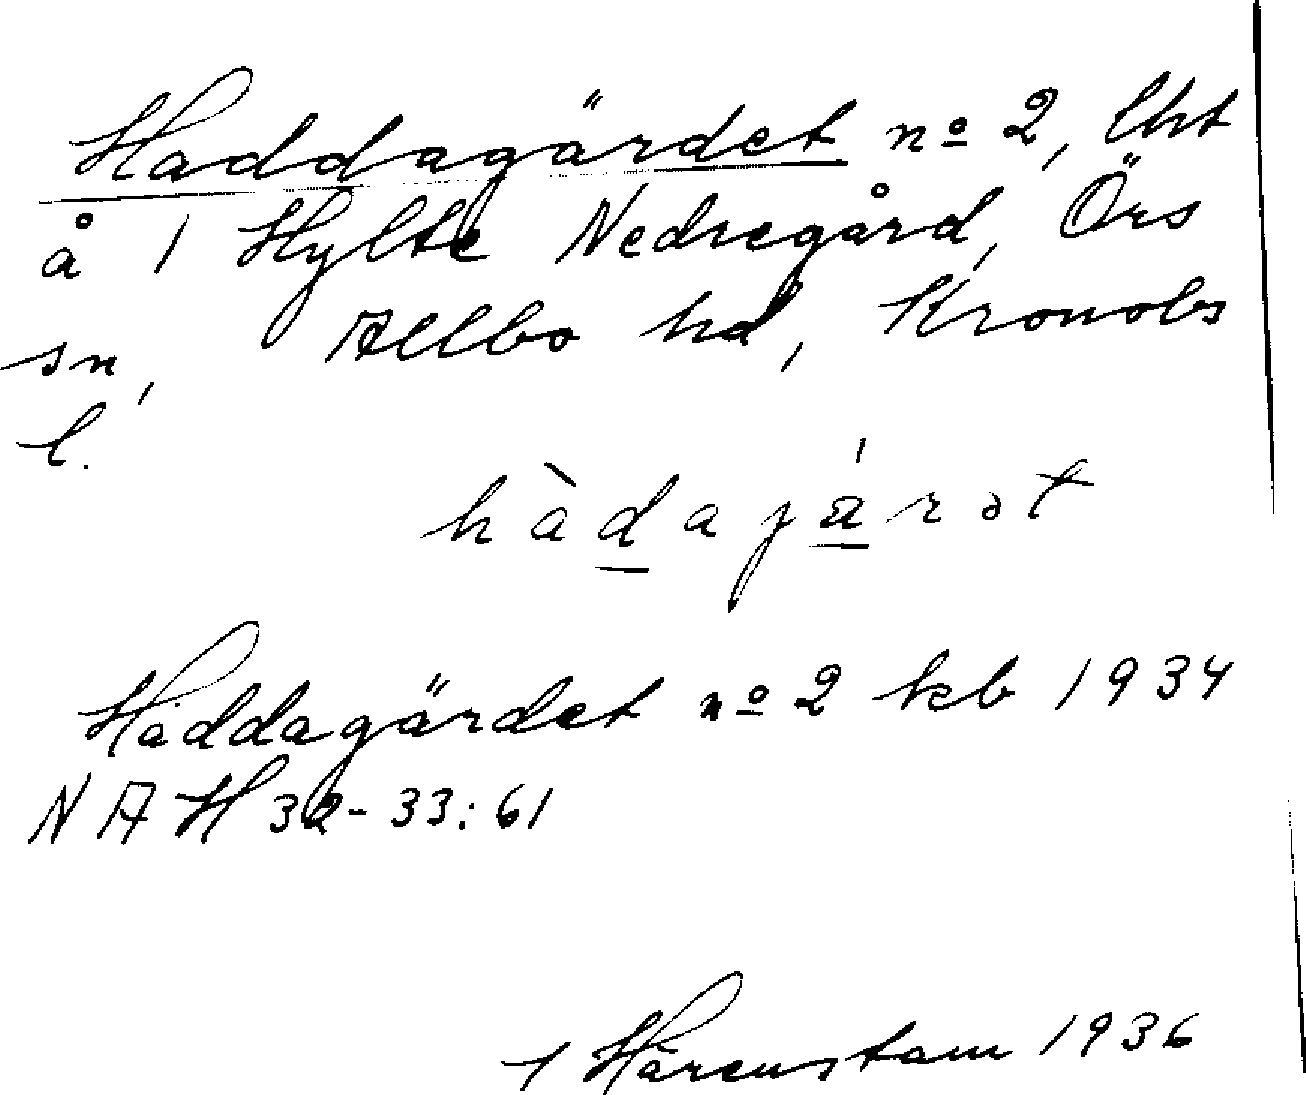 Haddagärdet nº 2, lht
å 1 Hylte Nedregård, Örs
sn, Allbo hd, Kronobs
l.
hàdajárət
Haddagärdet nº 2 kb 1934
NAH 32-33:61
Härenstam 1936